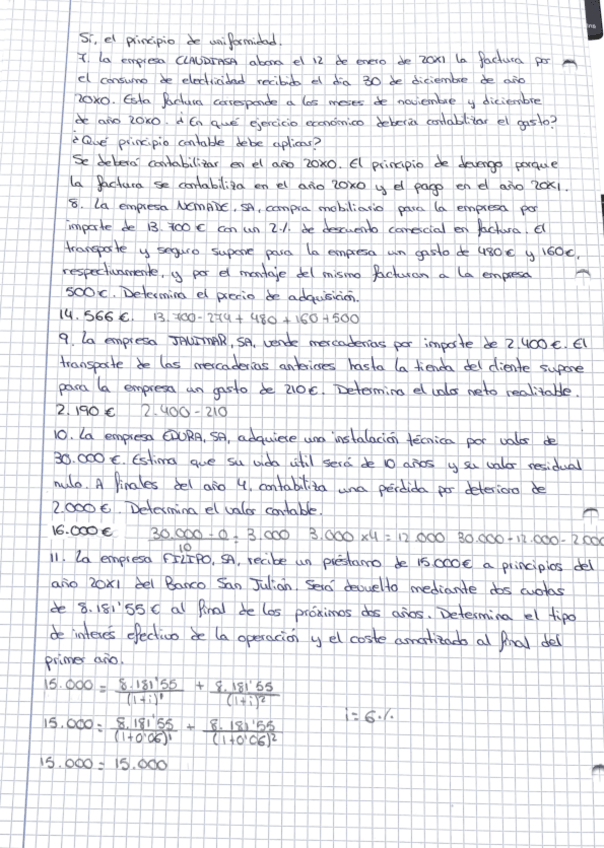 Sí, el principio de uniformidad.
7. La empresa CLAUDITASA abona el 12 de enero de 20X1 la factura por
el consumo de electricidad recibida el día 30 de diciembre de año
20X0. Esta factura corresponde a los meses de noviembre y diciembre
de año 20X0. ¿En qué ejercicio económico debería contabilizar el gasto?
¿Qué principio contable debe aplicar?
Se deberá contabilizar en el año 20X0. El principio de devengo porque
la factura se contabiliza en el año 20X0 y el pago en el año 20X1.
8. La empresa NOMADE, SA, compra mobiliario para la empresa por
importe de 13.700 € con un 2% de descuento comercial en factura. El
transporte y seguro supone para la empresa un gasto de 480 € y 160 €,
respectivamente, y por el montaje del mismo facturan a la empresa
500 €. Determina el precio de adquisición.
14.566 €. 13.700 - 274 + 480 + 160 + 500
9. La empresa JAUIMAR, SA, vende mercaderías por importe de 2.400 €. El
transporte de las mercaderías anteriores hasta la tienda del cliente supone
para la empresa un gasto de 210 €. Determina el valor neto realizable.
2.190 € 2.400 - 210
10. La empresa EDURA, SA, adquiere una instalación técnica por valor de
30.000 €. Estima que su vida útil será de 10 años y su valor residual
nulo. A finales del año 4, contabiliza una pérdida por deterioro de
2.000 €. Determina el valor contable.
16.000 € 30.000 - 0 / 10 = 3.000 3.000 x 4 = 12.000 30.000 - 12.000 - 2.000
11. La empresa FILIPO, SA, recibe un préstamo de 15.000 € a principios del
año 20X1 del Banco San Julián. Será devuelto mediante dos cuotas
de 8.181'55 € al final de los próximos dos años. Determina el tipo
de interés efectivo de la operación y el coste amortizado al final del
primer año.
15.000 = 8.181'55 / (1+i)¹ + 8.181'55 / (1+i)²
15.000 = 8.181'55 / (1+0'06)¹ + 8.181'55 / (1+0'06)² i = 6%
15.000 = 15.000